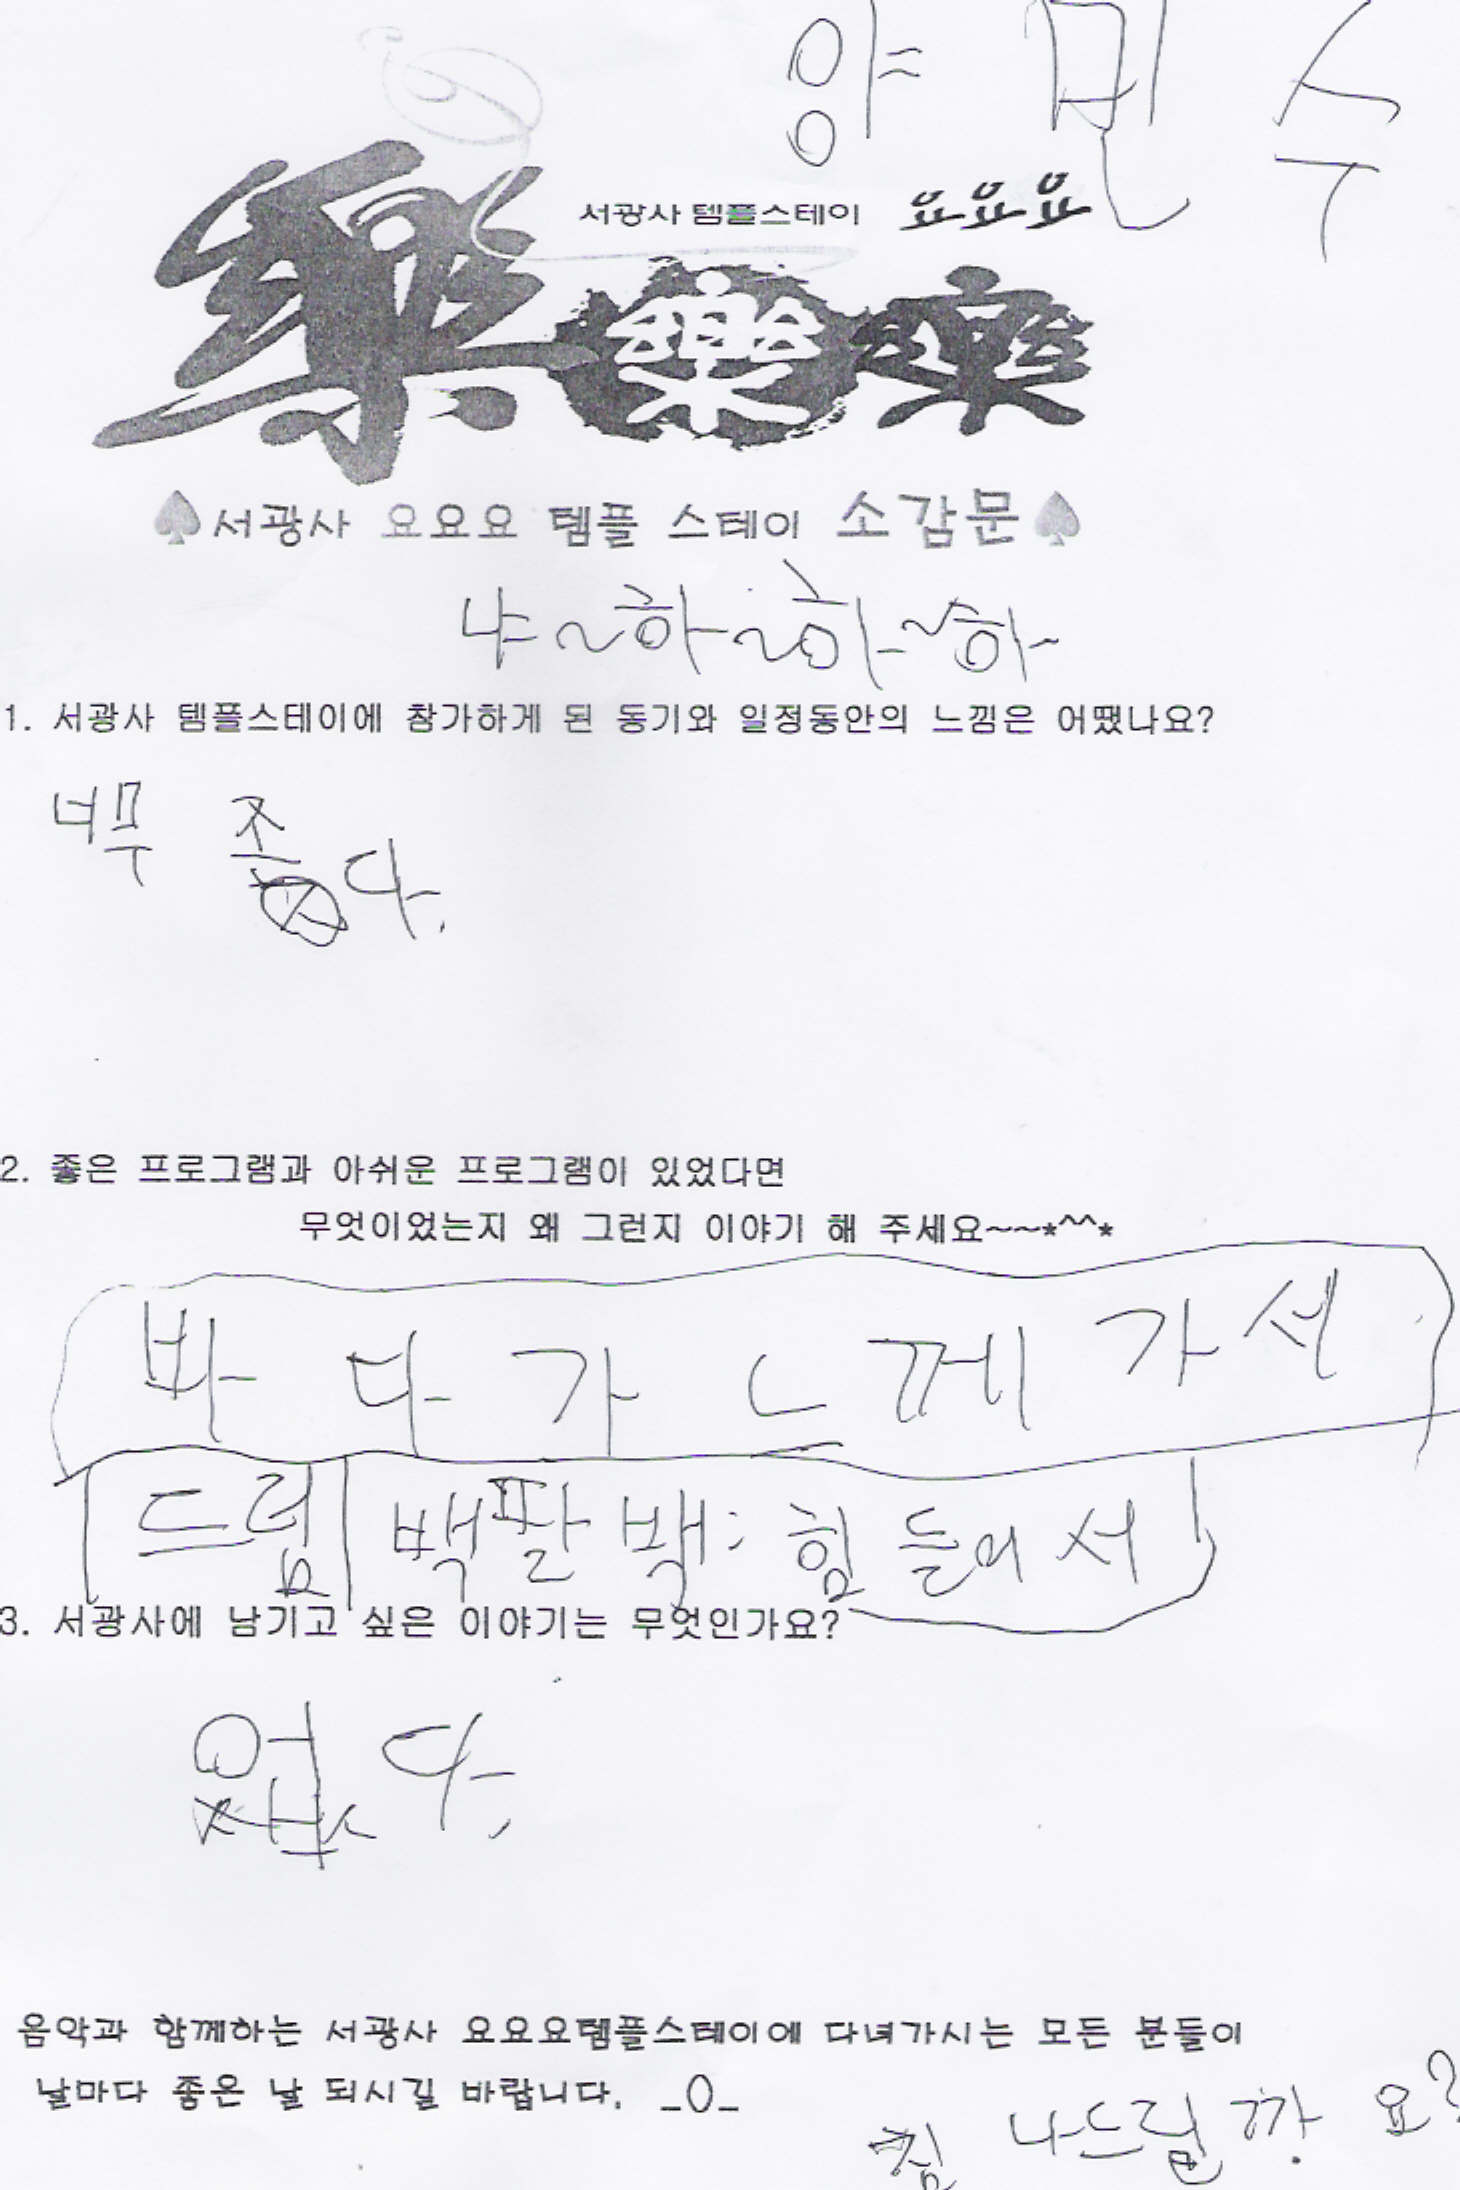 양민수
서광사 템플스테이 요요요
樂樂樂
♠서광사 요요요 템플 스테이 소감문♠
냐~하~하~하
1. 서광사 템플스테이에 참가하게 된 동기와 일정동안의 느낌은 어땠나요?
너무 좋다.
2. 좋은 프로그램과 아쉬운 프로그램이 있었다면
무엇이었는지 왜 그런지 이야기 해 주세요~~*^^*
바다가 느께가서
드럼 백팔배: 힘들어서
3. 서광사에 남기고 싶은 이야기는 무엇인가요?
없다.
음악과 함께하는 서광사 요요요템플스테이에 다녀가시는 모든 분들이
날마다 좋은 날 되시길 바랍니다. _O_
나드릴까요?